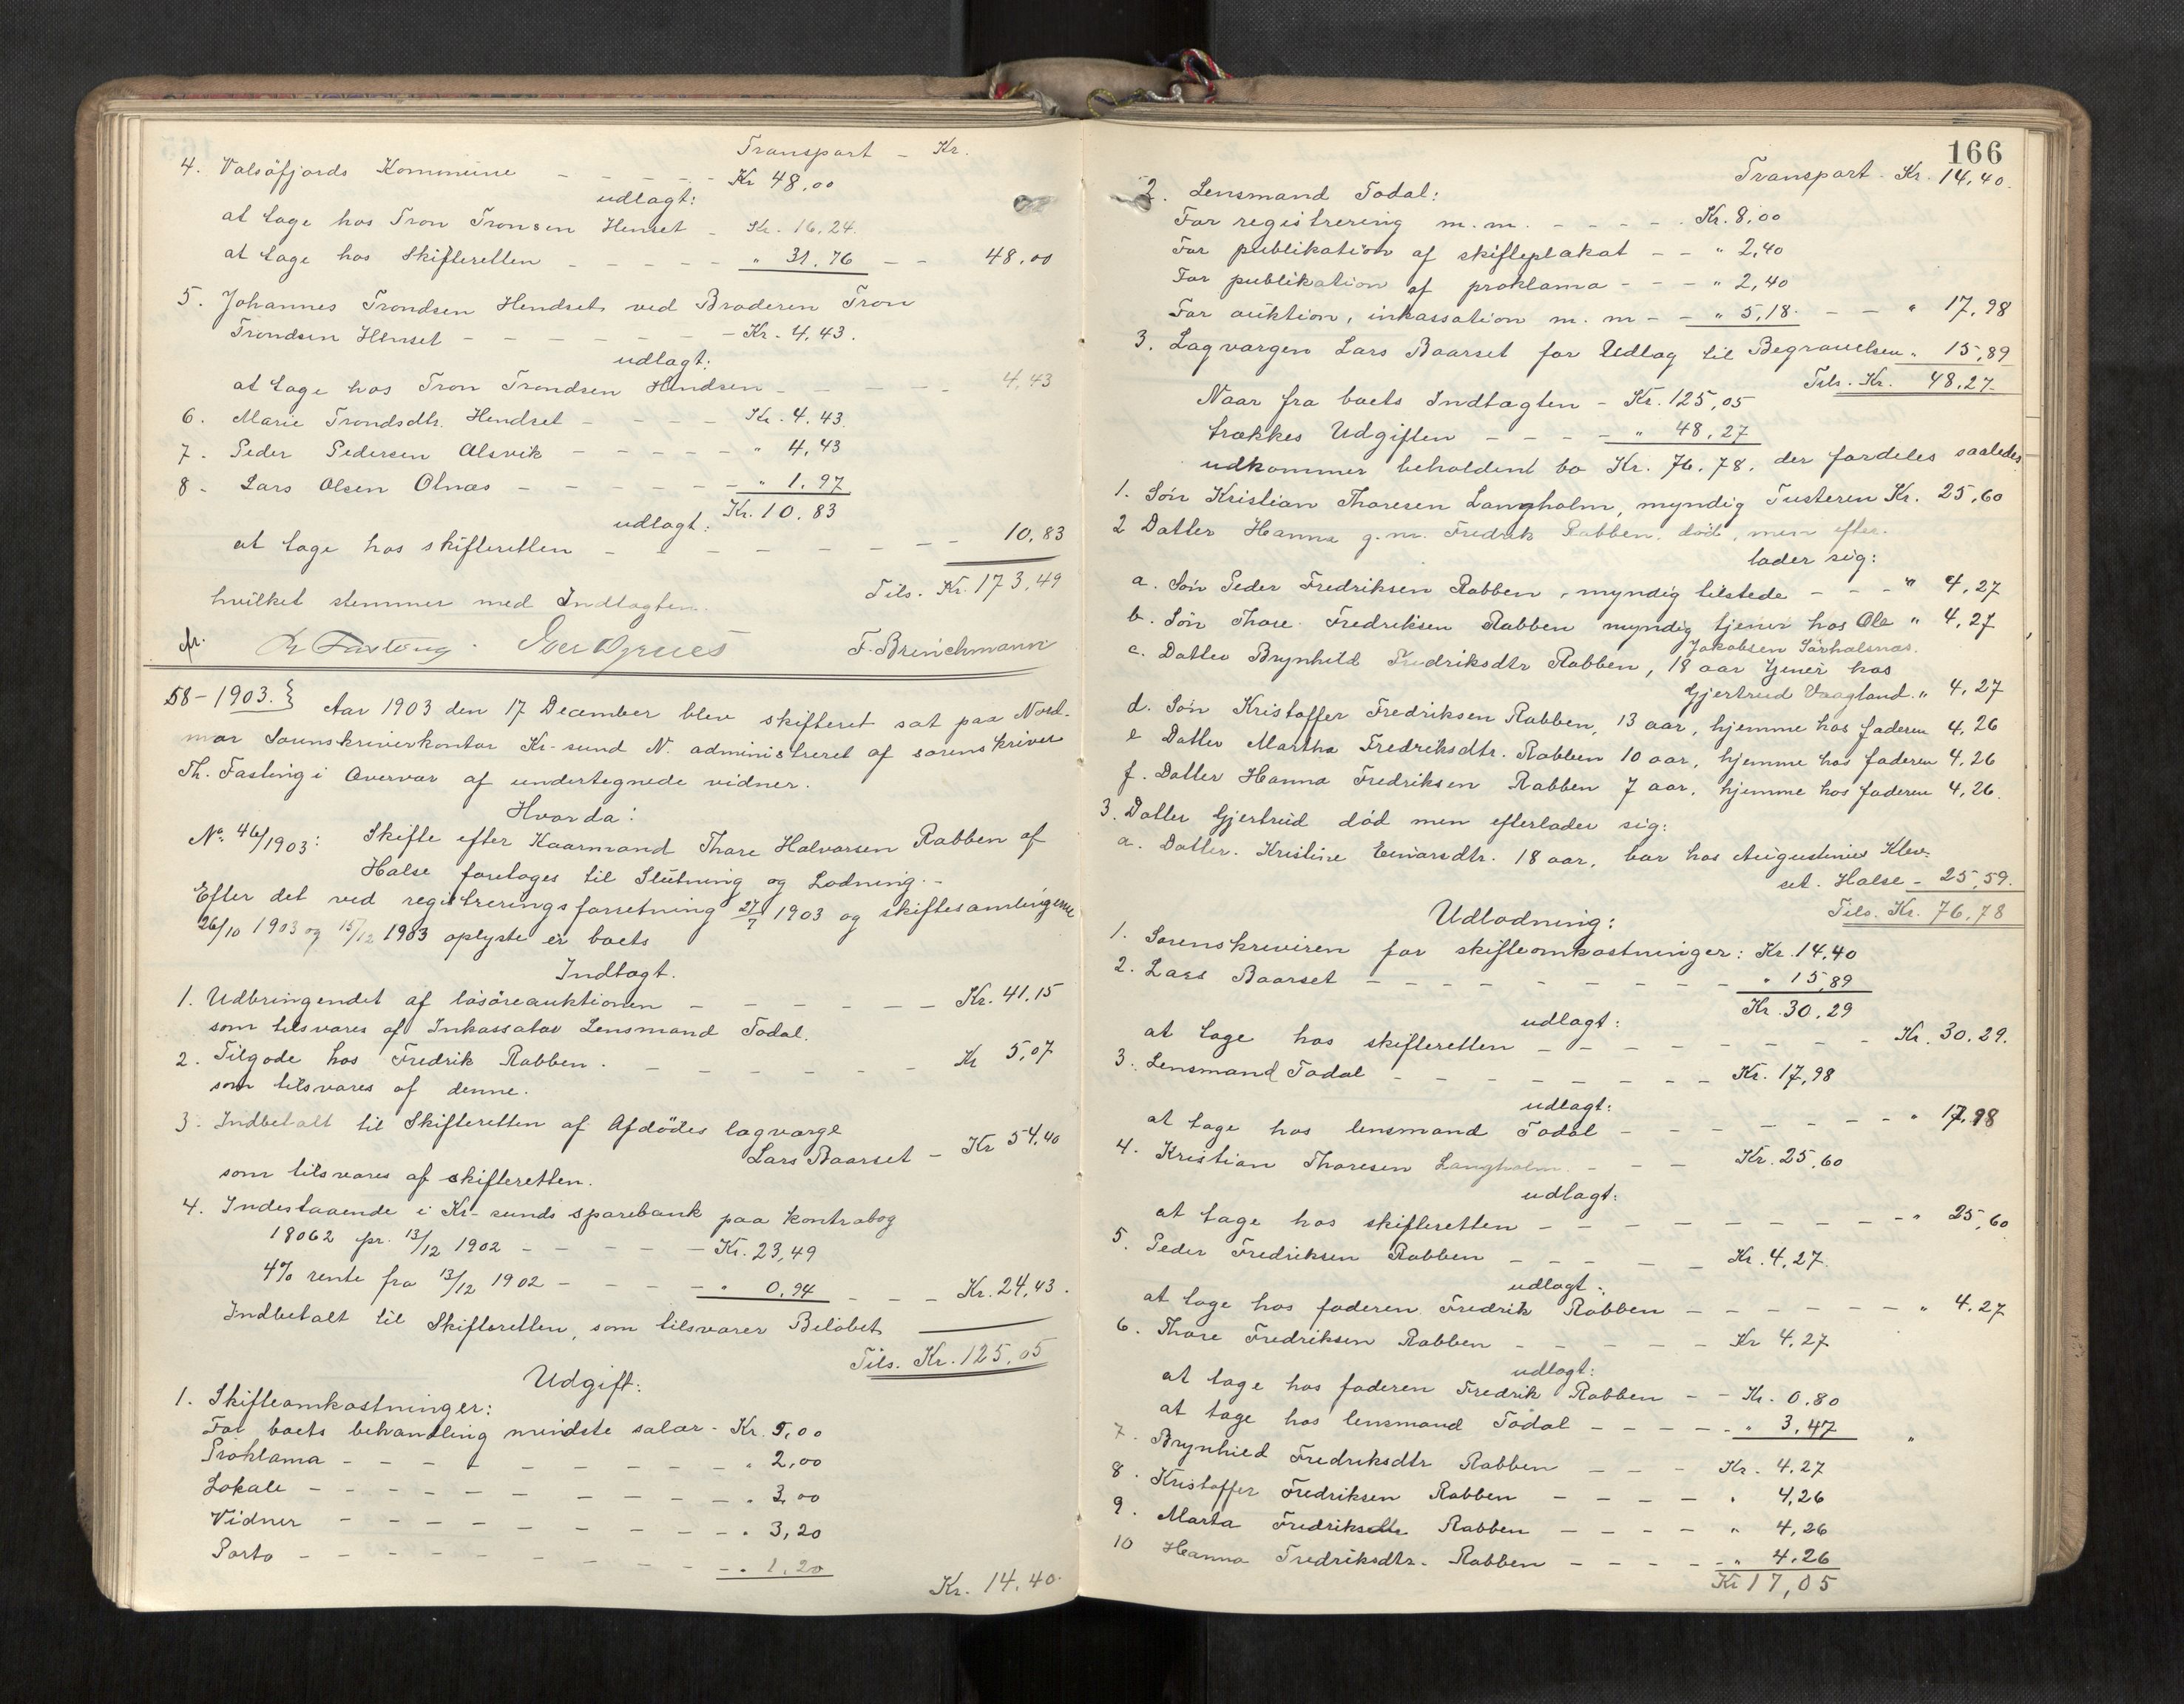 Transport - Kr.
4. Valsöfjords Kommune - - - - Kr 48,00
udlagt:
at tage hos Tron Tronsen Henset - Kr. 16,24.
at tage hos Skifteretten - - - - - " 31.76 - - 48,00
5. Johannes Trondsen Hendset, ved Broderen Tron
Trondsen Henset - - - - - - - Kr. 4,43.
udlagt:
at tage hos Tron Trondsen Hendsen - - - - - 4,43
6. Marie Trondsdtr. Hendset - - - - Kr. 4.43.
7. Peder Pedersen Alsvik - - - - - " 4,43
8. Lars Olsen Olnæs - - - - - - " 1.97
Kr. 10,83
udlagt:
at tage hos skifteretten - - - - - - - - - 10,83
Tils. Kr. 173,49
hvilket stemmer med Indtægten.
Th Fasting. F. Brinchmann
58-1903.} Aar 1903 den 17 December blev skifteret sat paa Nord-
mør Sorenskriverkontor Kr-sund N. administreret af sorenskriver
Th. Fasting i Overvær af undertegnede vidner.
Hvorda:
No. 46/1903: Skifte efter Kaarmand Thore Halvorsen Rabben af
Halse foretoges til Slutning og Lodning. -
Efter det ved registreringsforretning 27/7 1903 og skiftesamlingerne
26/10 1903 og 15/12 1903 oplyste er boets
Indtægt.
1. Udbringendet af løsöreauktionen - - - - - - Kr. 41.15
som tilsvares af Inkassator Lensmand Todal.
2. Tilgode hos Fredrik Rabben. - - - - - - - Kr 5,07
som tilsvares af denne.
3. Indbetalt til Skifteretten af Afdödes lagværge
Lars Baarset - Kr 54,40
som tilsvares af skifteretten.
4. Indestaaende i Kr-sunds sparebank paa kontrabog
18062 pr. 13/12 1902 - - - - - Kr. 23,49
4% rente fra 13/12 1902 - - - - " 0,94 - - - Kr. 24,43.
Indbetalt til Skifteretten, som tilsvarer Belöbet
Tils. Kr. 125,05
Udgift:
1. Skifteomkostninger:
For boets behandling mindste salær - Kr. 5,00
Proklama - - - - - - - - - " 2,00
Lokale - - - - - - - - - - " 3,00
Vidner - - - - - - - - - - " 3,20
Porto - - - - - - - - - - " 1,20
Kr. 14,40.
166
Transport - Kr. 14,40.
2. Lensmand Todal:
For registrering m.m. - - - - Kr. 8,00
For publikation af skifteplakat - - " 2,40
For publikation af proklama - - - " 2,40
For auktion, inkassation m.m - - " 5,18. - - " 17,98
3. Lagværgen Lars Baarset for Udlæg til Begravelsen " 15,89
Tils. Kr. 48,27.
Naar fra boets Indtægten - Kr. 125,05
trækkes Udgiften - - - - " 48,27
udkommer beholdent bo Kr. 76,78. der fordeles saaledes
1. Sön Kristian Thoresen Langholm, myndig Tusteren Kr. 25,60
2 Datter Hanna g.m. Fredrik Rabben, död, men efter-
lader sig:
a. Sön Peder Fredriksen Rabben, myndig tilstede - - - " 4,27
b. Sön Thore Fredriksen Rabben myndig tjener hos Ole " 4,27
Jakobsen Särhalsnæs.
c. Datter Brynhild Fredriksdtr Rabben, 18 aar tjener hos
Gjertrud Vaagland. " 4,27
d. Sön Kristoffer Fredriksen Rabben, 13 aar, hjemme hos faderen 4,26
e Datter Martha Fredriksdtr. Rabben 10 aar, hjemme hos faderen 4,26
f. Datter Hanna Fredriksen Rabben 7 aar, hjemme hos faderen 4,26.
3. Datter Gjertrud död men efterlader sig:
a. Datter. Kristine Einarsdtr. 18 aar, bor hos Augustinus Klev-
set. Halse - 25,59.
Tils. Kr. 76,78
Udlodning:
1. Sorenskriveren for skifteomkostninger: Kr. 14,40
2. Lars Baarset - - - - - - - - - " 15,89
Kr. 30,29
udlagt:
at tage hos skifteretten - - - - - - - - - Kr. 30,29.
3. Lensmand Todal - - - - - - - - Kr. 17,98
udlagt:
at tage hos lensmand Todal - - - - - - - " 17,98
4. Kristian Thoresen Langholm. - - - Kr. 25,60
udlagt:
at tage hos skifteretten - - - - - - - - - " 25,60
5. Peder Fredriksen Rabben - - - - - Kr. 4,27.
udlagt:
at tage hos faderen Fredrik Rabben - - - - - - - " 4,27
6. Thore Fredriksen Rabben - - - - - Kr 4,27
udlagt:
at tage hos faderen Fredrik Rabben - - Kr. 0,80
at tage hos lensmand Todal - - - - - " 3,47 "
7. Brynhild Fredriksdtr Rabben - - - Kr. 4,27
8. Kristoffer Fredriksen Rabben - - - - " 4,26
9. Marta Fredriksdtr Rabben - - - - " 4,26
10 Hanna Fredriksdtr. Rabben - - - - - " 4,26
Kr 17,05